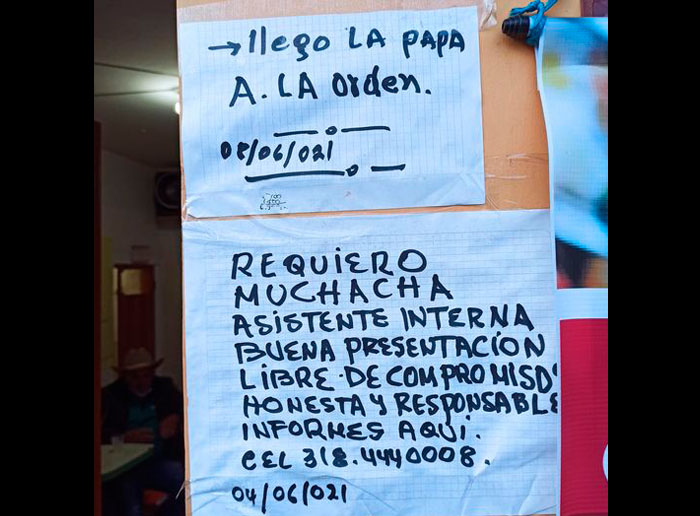 → llego LA PAPA
A. LA Orden.
08/06/021
REQUIERO
MUCHACHA
ASISTENTE INTERNA
BUENA PRESENTACION
LIBRE DE COMPROMISO
HONESTA Y RESPONSABLE
INFORMES AQUI.
CEL 318.4440008.
04/06/021